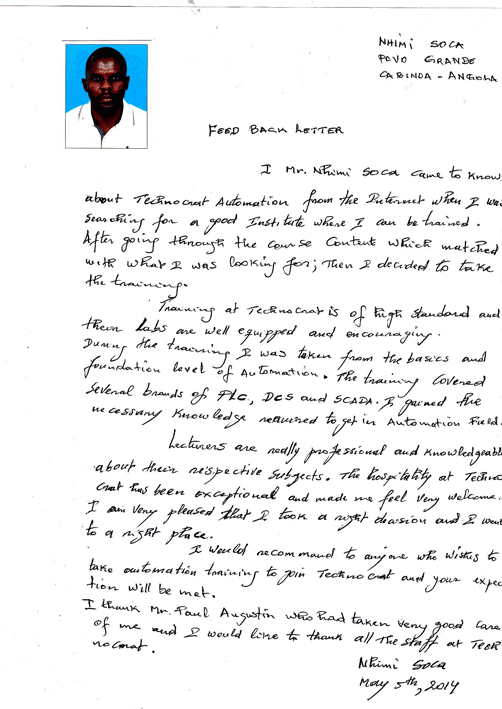 NHIMI SOCA
POVO GRANDE
CABINDA - ANGOLA
FEED BACK LETTER
I Mr. Nhimi SOCA came to know
about Technocrat Automation from the Internet when I was
Searching for a good Institute where I can be trained.
After going through the course content which matched
with what I was looking for; Then I decided to take
the training.
Training at Technocrat is of high standard and
their labs are well equipped and encouraging.
During the training I was taken from the basics and
foundation level of Automation. The training covered
Several brands of PLC, DCS and SCADA. I gained the
necessary knowledge required to get in Automation Field.
Lecturers are really professional and knowledgeabl
about their respective subjects. The hospitality at Techno
crat has been exceptional and made me feel very welcome.
I am very pleased that I took a right decision and I went
to a right place.
I would recommand to anyone who wishes to
take automation training to join Technocrat and your expec
tion will be met.
I thank Mr. Paul Augustin who had taken very good care
of me and I would like to thank all the staff at Tech
nocrat.
Nhimi Soca
May 5th, 2014